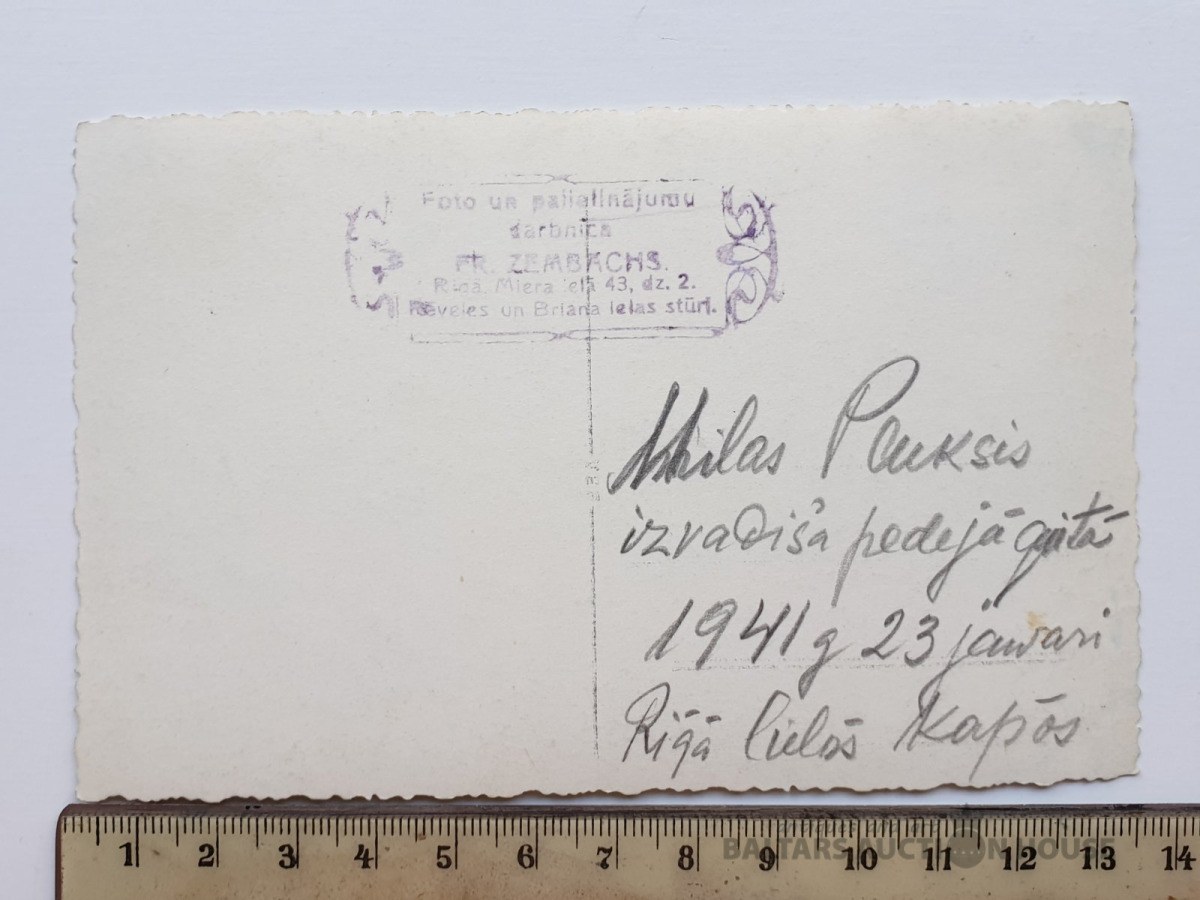 Foto un palielinājumu
darbnīca
FR. ZEMBACHS.
Rīgā, Miera ielā 43, dz. 2.
Rēveles un Briāna ielas stūrī.
Milas Pauksis
izvadišā pedejā gaitā
1941 g 23 janvari
Rīgā lielās Kapōs
1 2 3 4 5 6 7 8 9 10 11 12 13 14
BALTARS AUCTION HOUSE